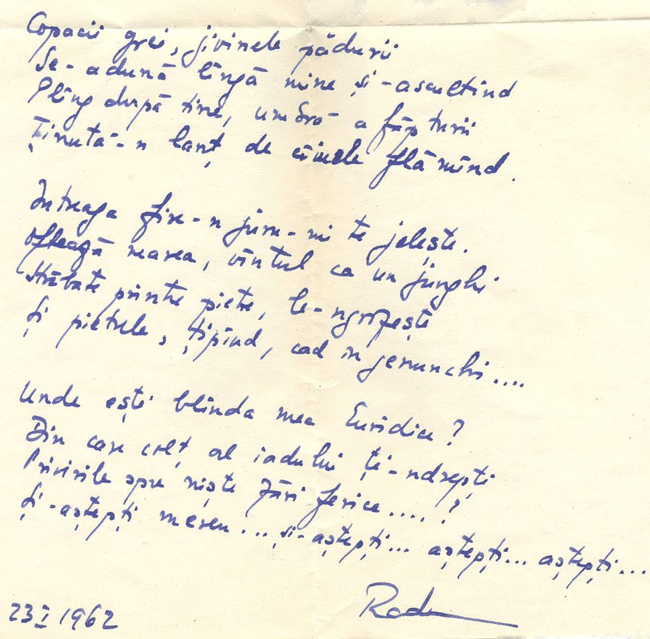 Copacii grei, jivinele pădurii
Se-adună lîngă mine și-ascultînd
Plîng după tine, umbră a făpturii
Ținută-n lanț de cîinele flămînd.
Întreaga fire-n juru-mi te jelește.
Oftează marea, vîntul ca un junghi
Străbate printre pietre, le-ngrozește
Și pietrele, țipînd, cad în genunchi....
Unde ești blînda mea Euridice?
Din care colț al iadului ți-ndrepți
Privirile spre niște zări ferice....?
Și-aștepți mereu... și-aștepți... aștepți... aștepți...
23 I 1962
Radu